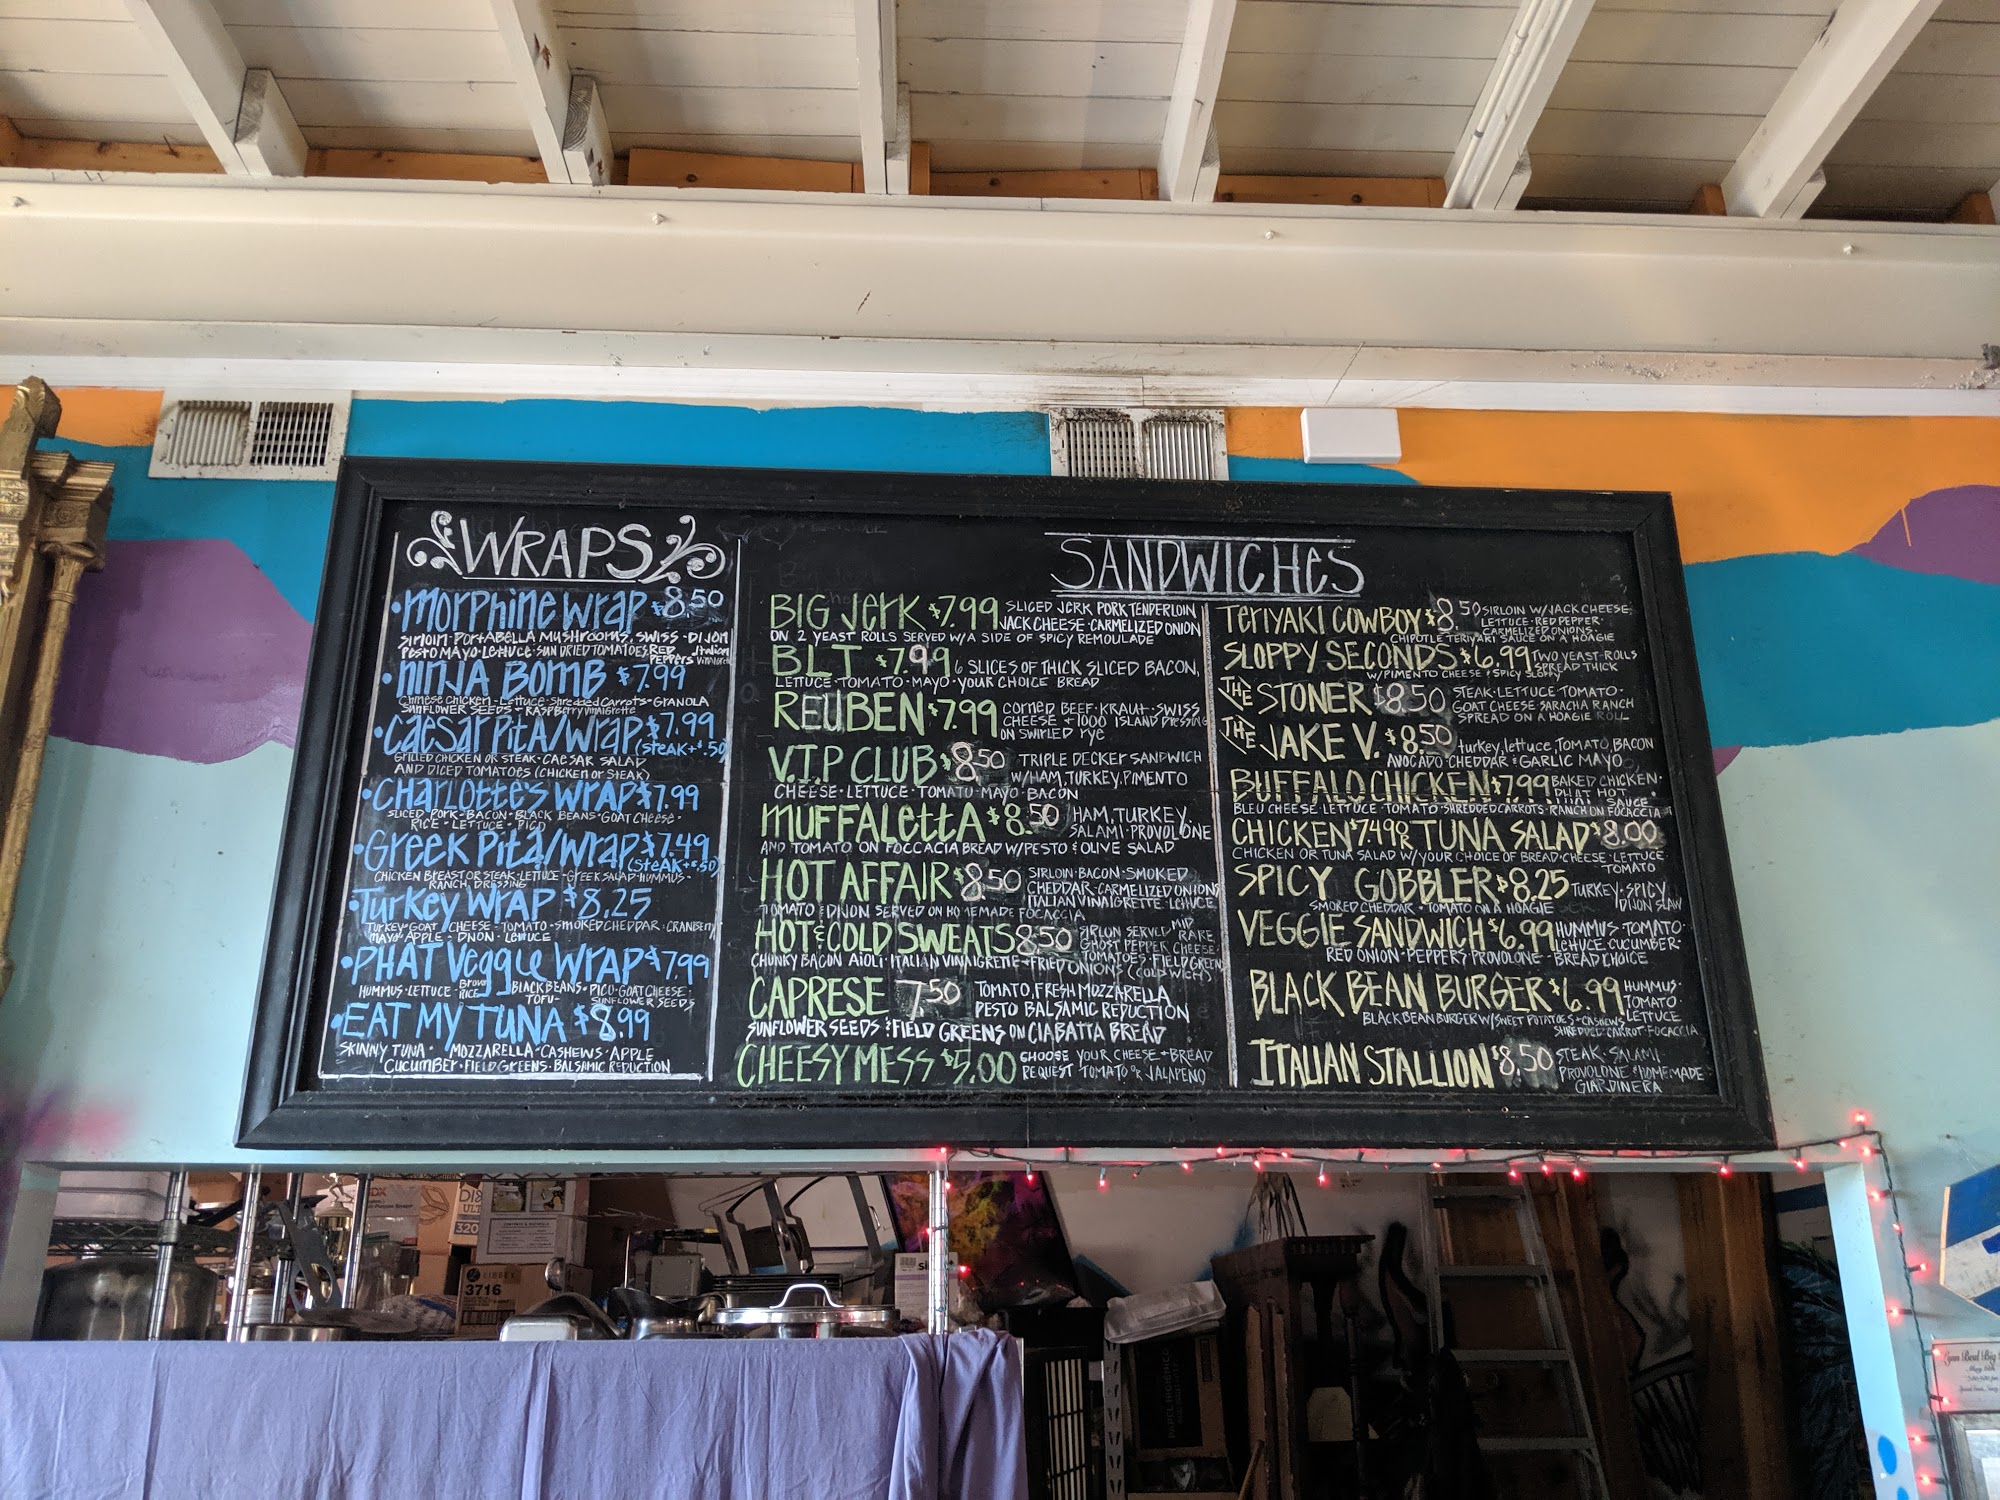 WRAPS
•MORPHINE WRAP $8.50
SIRLOIN·PORTABELLA MUSHROOMS, SWISS·DIJON
PESTO MAYO·LETTUCE·SUN DRIED TOMATOES RED PEPPERS Italian
•NINJA BOMB $7.99
CHINESE CHICKEN·LETTUCE·SHREDDED CARROTS·GRANOLA
SUNFLOWER SEEDS + RASPBERRY VINAIGRETTE
•CAESAR PITA/WRAP $7.99
(STEAK+$.50)
GRILLED CHICKEN OR STEAK·CAESAR SALAD
AND DICED TOMATOES (CHICKEN OR STEAK)
•CHARLOTTE'S WRAP $7.99
SLICED PORK·BACON·BLACK BEANS·GOAT CHEESE·
RICE·LETTUCE·PICO
•GREEK PITA/WRAP $7.49
(STEAK+$.50)
CHICKEN BREAST OR STEAK·LETTUCE·GREEK SALAD·HUMMUS·
RANCH DRESSING
•TURKEY WRAP $8.25
TURKEY·GOAT CHEESE·TOMATO·SMOKED CHEDDAR·CRANBERRY
MAYO·APPLE·DIJON·LETTUCE
•PHAT VEGGIE WRAP $7.99
HUMMUS·LETTUCE·BROWN RICE BLACK BEANS·PICO·GOAT CHEESE·
TOFU·SUNFLOWER SEEDS
•EAT MY TUNA $8.99
SKINNY TUNA·MOZZARELLA·CASHEWS·APPLE
CUCUMBER·FIELD GREENS·BALSAMIC REDUCTION
SANDWICHES
BIG JERK $7.99 SLICED JERK PORK TENDERLOIN
JACK CHEESE·CARMELIZED ONION
ON 2 YEAST ROLLS SERVED W/A SIDE OF SPICY REMOULADE
BLT $7.99 6 SLICES OF THICK SLICED BACON,
LETTUCE·TOMATO·MAYO·YOUR CHOICE BREAD
REUBEN $7.99 CORNED BEEF·KRAUT·SWISS
CHEESE +1000 ISLAND DRESSING
ON SWIRLED RYE
V.I.P CLUB $8.50 TRIPLE DECKER SANDWICH
W/HAM, TURKEY, PIMENTO
CHEESE·LETTUCE·TOMATO·MAYO·BACON
MUFFALETTA $8.50 HAM, TURKEY,
SALAMI·PROVOLONE
AND TOMATO ON FOCCACIA BREAD W/PESTO & OLIVE SALAD
HOT AFFAIR $8.50 SIRLOIN·BACON·SMOKED
CHEDDAR·CARMELIZED ONIONS
ITALIAN VINAIGRETTE·LETTUCE
TOMATO & DIJON SERVED ON HOMEMADE FOCACCIA
HOT & COLD SWEATS 8.50 SIRLOIN SERVED MID RARE
GHOST PEPPER CHEESE
TOMATOES·FIELD GREENS
CHUNKY BACON AIOLI·ITALIAN VINAIGRETTE+FRIED ONIONS (COLD WICH)
CAPRESE 7.50 TOMATO, FRESH MOZZARELLA
PESTO BALSAMIC REDUCTION
SUNFLOWER SEEDS & FIELD GREENS ON CIABATTA BREAD
CHEESY MESS $5.00 CHOOSE YOUR CHEESE + BREAD
REQUEST TOMATO OR JALAPENO
TERIYAKI COWBOY $8.50 SIRLOIN W/JACK CHEESE
LETTUCE·RED PEPPER·
CARMELIZED ONIONS
CHIPOTLE TERIYAKI SAUCE ON A HOAGIE
SLOPPY SECONDS $6.99 TWO YEAST ROLLS
SPREAD THICK
W/PIMENTO CHEESE & SPICY SLOPPY
THE STONER $8.50 STEAK·LETTUCE·TOMATO·
GOAT CHEESE·SARACHA RANCH
SPREAD ON A HOAGIE ROLL
THE JAKE V. $8.50 TURKEY, LETTUCE, TOMATO, BACON
AVOCADO·CHEDDAR & GARLIC MAYO
BUFFALO CHICKEN $7.99 BAKED CHICKEN·
PHAT HOT SAUCE
BLEU CHEESE·LETTUCE·TOMATO·SHREDDED CARROTS·RANCH ON FOCACCIA
CHICKEN $7.49 OR TUNA SALAD $8.00
CHICKEN OR TUNA SALAD W/YOUR CHOICE OF BREAD·CHEESE·LETTUCE
TOMATO
SPICY GOBBLER $8.25 TURKEY·SPICY
DIJON SLAW
SMOKED CHEDDAR·TOMATO ON A HOAGIE
VEGGIE SANDWICH $6.99 HUMMUS·TOMATO·
LETTUCE·CUCUMBER·
RED ONION·PEPPERS·PROVOLONE·BREAD CHOICE
BLACK BEAN BURGER $6.99 HUMMUS·
TOMATO·
LETTUCE
BLACK BEAN BURGER W/SWEET POTATOES+CASHEWS
SHREDDED CARROT·FOCACCIA
ITALIAN STALLION $8.50 STEAK·SALAMI·
PROVOLONE & HOMEMADE
GIARDINERA
3716
320